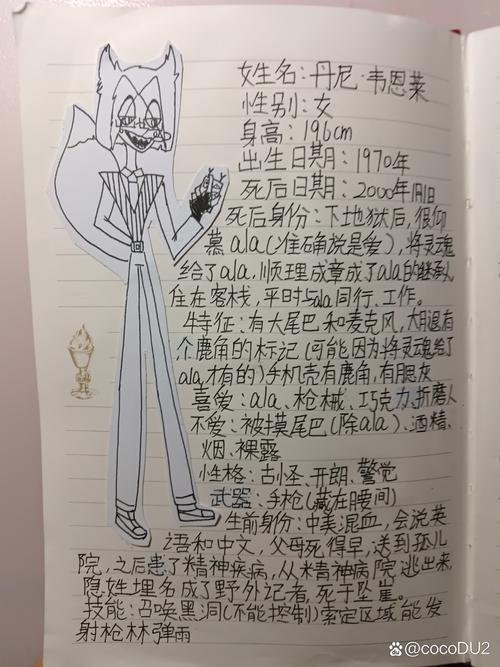 女生名：丹尼·韦恩莱
性别：女
身高：196cm
出生日期：1970年
死后日期：2000年1月1日
死后身份：下地狱后，很仰
慕ala(准确说是爱)，将灵魂
给了ala，顺理成章成了ala的继承人
住在客栈，平时与ala同行、工作。
特征：有大尾巴和麦克风，大腿有
个鹿角的标记(可能因为将灵魂给了
ala才有的)手机壳有鹿角，有
喜爱：ala、枪械、巧克力、折磨人
不爱：被摸尾巴(除ala)、酒精、
烟、裸露
性格：古怪、开朗、警觉
武器：手枪(藏在腰间)
生前身份：中美混血，会说英
语和中文，父母死得早，送到孤儿
院，之后患了精神疾病，从精神病院逃出来，
隐姓埋名成了野外记者，死于坠崖。
技能：召唤黑洞(不能控制)索定区域能发
射枪林弹雨
@cocoDU2